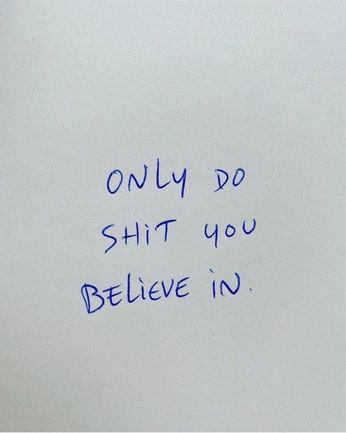 ONLY DO
SHIT YOU
BELIEVE IN.